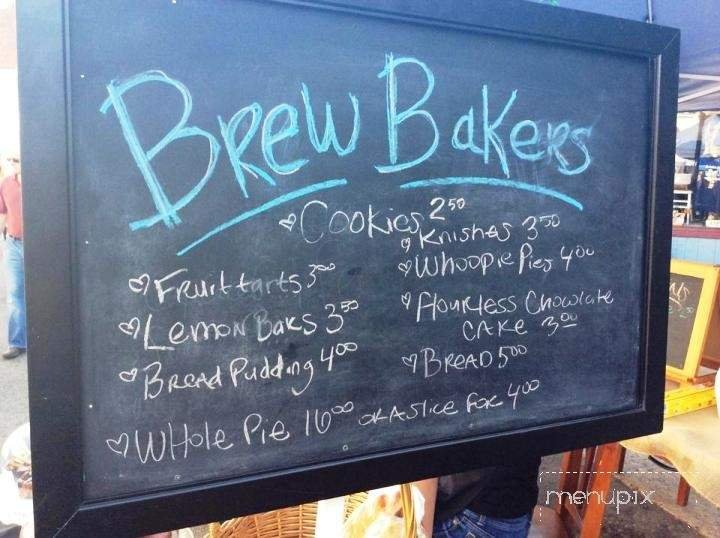 Brew Bakers
Cookies 2.50
Knishes 3.50
Fruit tarts 3.00
Whoopie Pies 4.00
Lemon Bars 3.50
Flourless Chocolate
Cake 3.00
Bread Pudding 4.00
Bread 5.00
Whole Pie 16.00 or A slice for 4.00
menupix